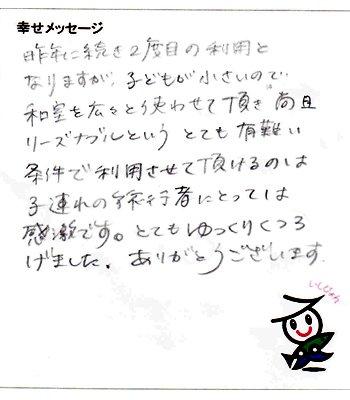 幸せメッセージ
昨年に続き2度目の利用と
なりますが、子どもが小さいので
和室を広々と使わせて頂き 尚且
リーズナブルという とても有難い
条件で利用させて頂けるのは
子連れの旅行者にとっては
感激です。とてもゆっくりくつろ
げました。ありがとうございます。